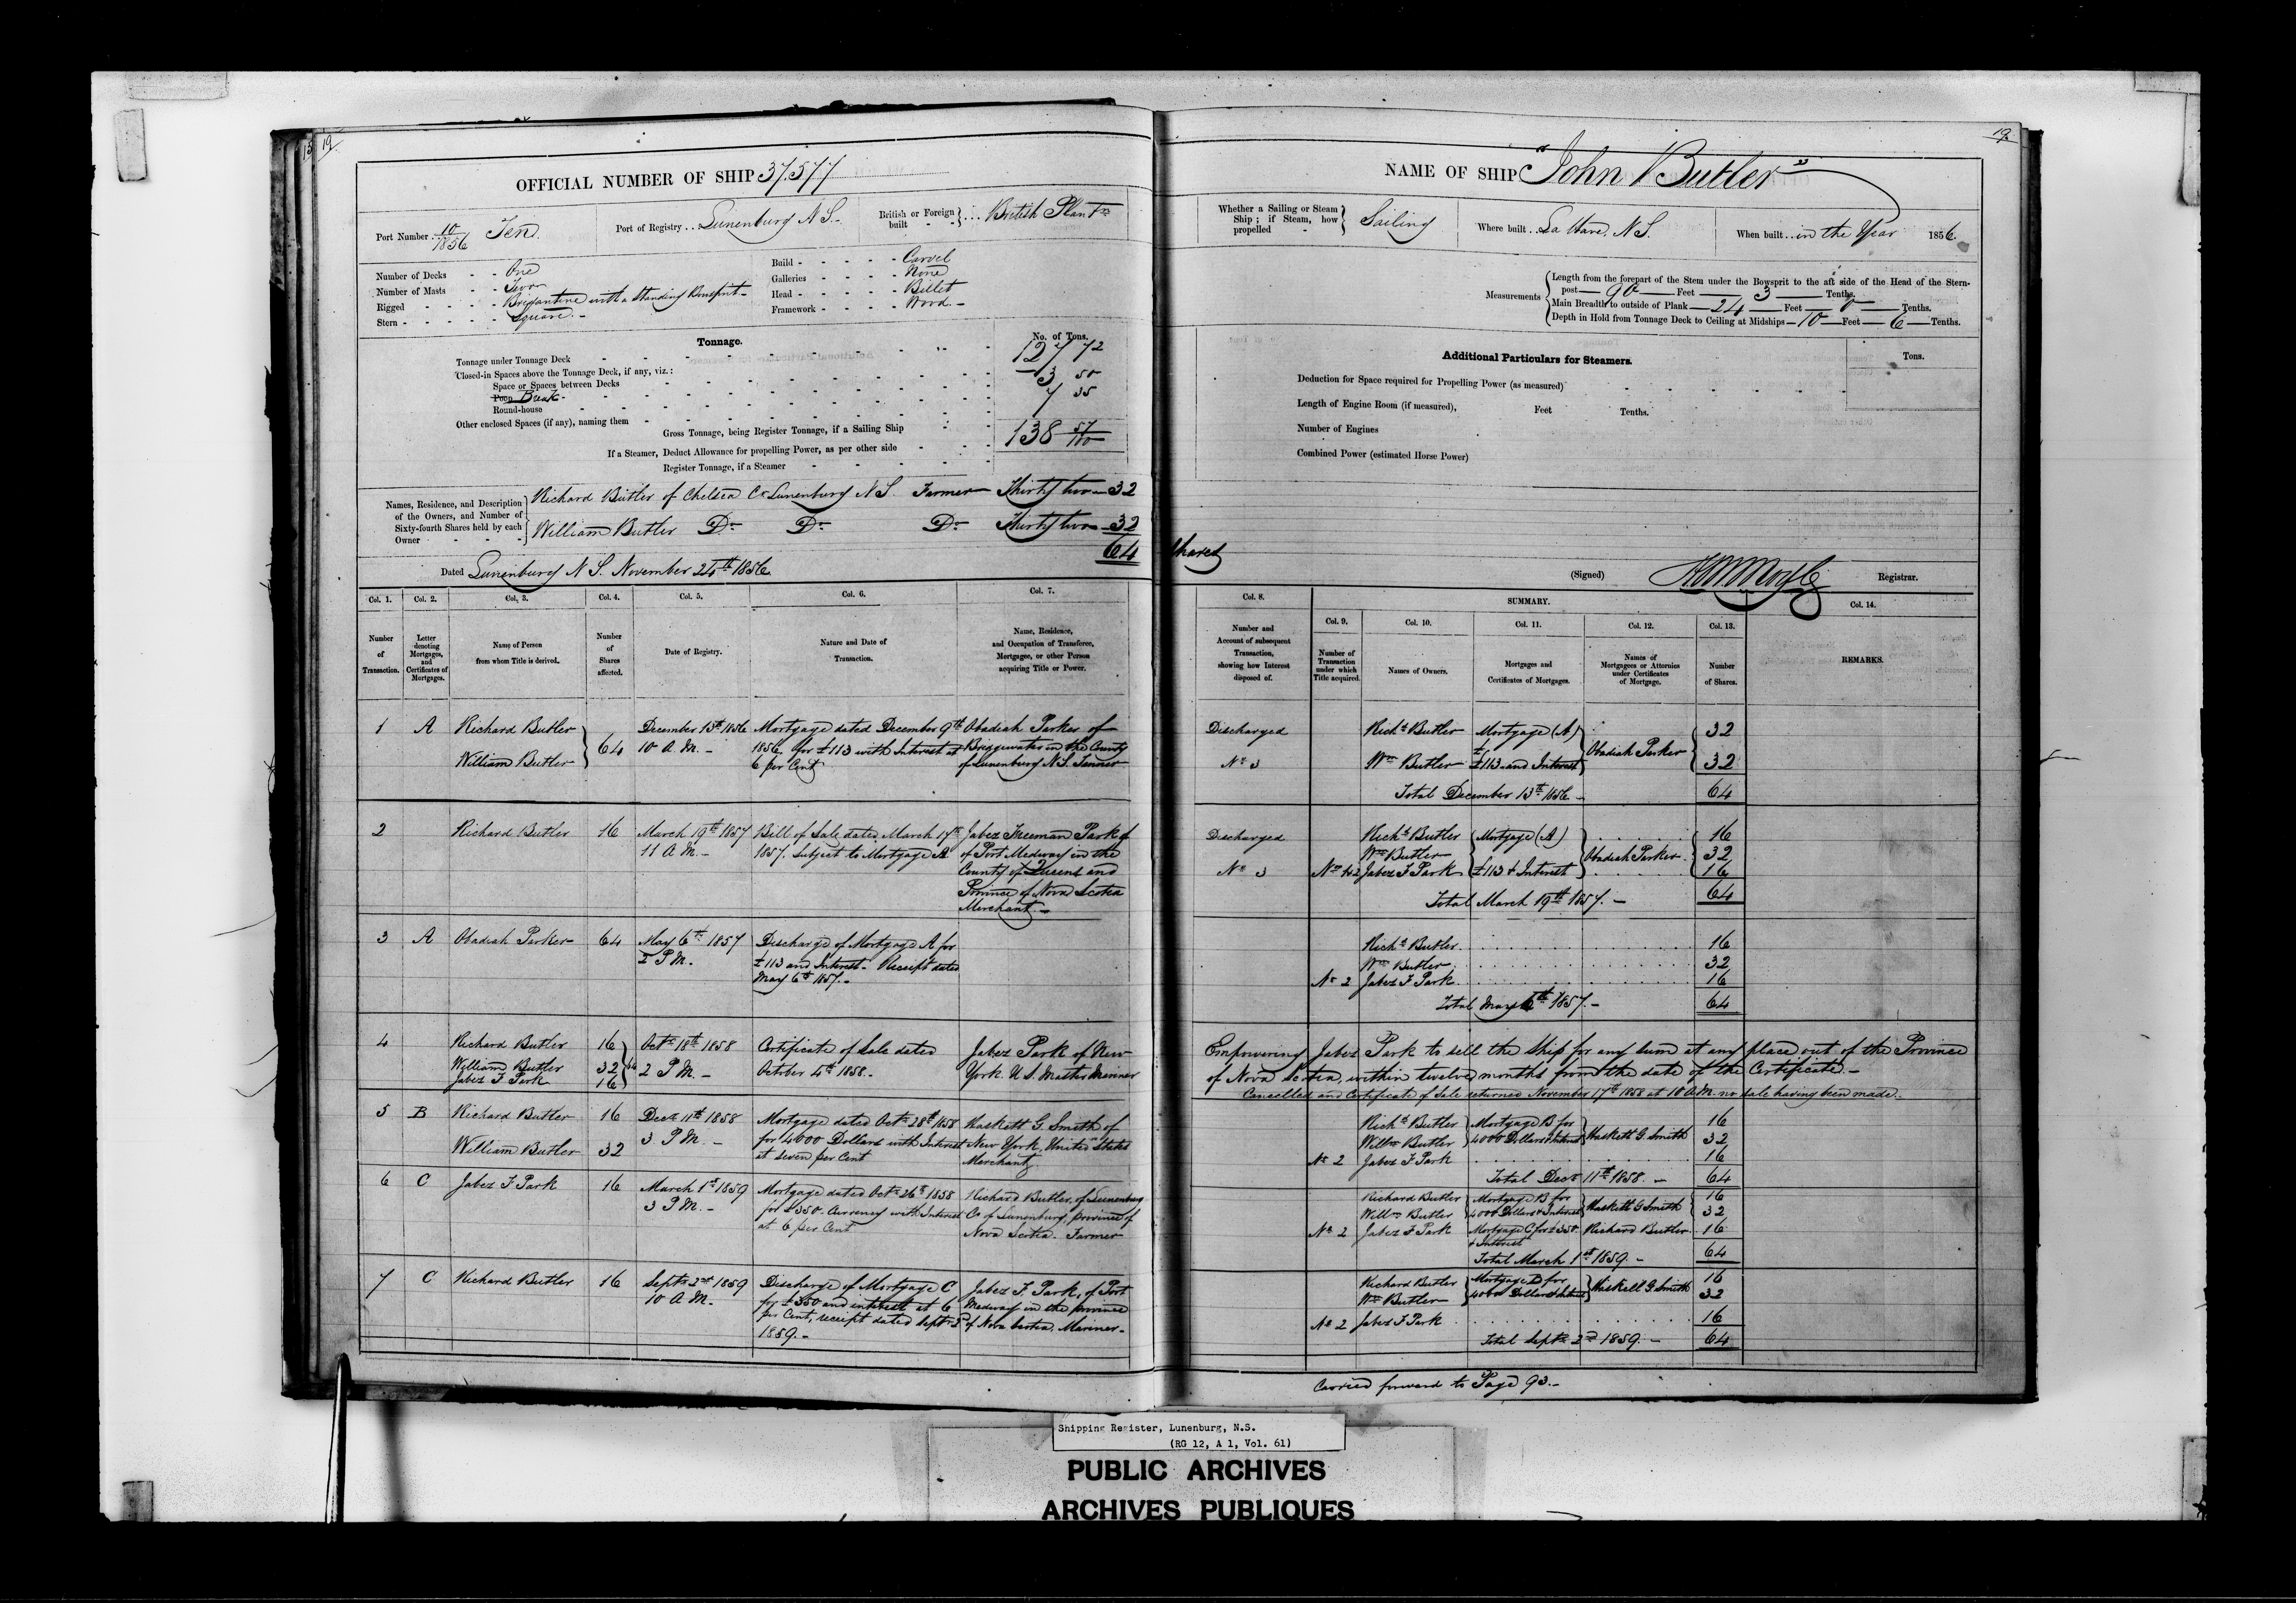 19
19
OFFICIAL NUMBER OF SHIP 37.577
Port Number 10/1856 Ten
Port of Registry Lunenburg N S.
British or Foreign built British Plantn
Number of Decks One
Number of Masts Two
Rigged Brigantine with a Standing Bowsprit
Stern Square
Build Carvel
Galleries None
Head Billet
Framework Wood
Tonnage.
No. of Tons.
Tonnage under Tonnage Deck 127 72
Closed-in Spaces above the Tonnage Deck, if any, viz.:
Space or Spaces between Decks
Poop Break 3 50
Round-house 7 35
Other enclosed Spaces (if any), naming them
Gross Tonnage, being Register Tonnage, if a Sailing Ship 138 57/100
If a Steamer, Deduct Allowance for propelling Power, as per other side
Register Tonnage, if a Steamer
Names, Residence, and Description of the Owners, and Number of Sixty-fourth Shares held by each Owner
Richard Butler of Chelsea Co Lunenburg N S. Farmer Thirty two 32
William Butler Do Do Do Thirty two 32
64 Shares
Dated Lunenburg N S. November 24th 1856
NAME OF SHIP "John Butler"
Whether a Sailing or Steam Ship; if Steam, how propelled Sailing
Where built La Have, N.S.
When built in the Year 1856.
Measurements
Length from the forepart of the Stem under the Bowsprit to the aft side of the Head of the Stern-
post 90 Feet 3 Tenths.
Main Breadth to outside of Plank 24 Feet 0 Tenths.
Depth in Hold from Tonnage Deck to Ceiling at Midships 10 Feet 6 Tenths.
Additional Particulars for Steamers.
Tons.
Deduction for Space required for Propelling Power (as measured)
Length of Engine Room (if measured), Feet Tenths.
Number of Engines
Combined Power (estimated Horse Power)
(Signed) Registrar.
Col. 1. Col. 2. Col. 3. Col. 4. Col. 5. Col. 6. Col. 7.
Number of Transaction.
Letter denoting Mortgages, and Certificates of Mortgages.
Name of Person from whom Title is derived.
Number of Shares affected.
Date of Registry.
Nature and Date of Transaction.
Name, Residence, and Occupation of Transferee, Mortgagee, or other Person acquiring Title or Power.
Col. 8.
Number and Account of subsequent Transaction, showing how Interest disposed of.
SUMMARY.
Col. 9. Col. 10. Col. 11. Col. 12. Col. 13. Col. 14.
Number of Transaction under which Title acquired.
Names of Owners.
Mortgages and Certificates of Mortgages.
Names of Mortgagees or Attornies under Certificates of Mortgage.
Number of Shares.
REMARKS.
1 A Richard Butler
William Butler 64
December 13th 1856
10 A.M.
Mortgage dated December 9th
1856, for £113 with Interest at
6 per Cent
Obadiah Parker of
Bridgewater in the County
of Lunenburg N S. Tanner
Discharged
No 3
Richd Butler Mortgage (A) 32
Wm Butler £113 and Interest Obadiah Parker 32
Total December 13th 1856 64
2 Richard Butler 16
March 19th 1857
11 A.M.
Bill of Sale dated March 17th
1857. Subject to Mortgage A
Jabez Freeman Park of
of Port Medway in the
County of Queens and
Province of Nova Scotia
Merchant
Discharged
No 3
Richd Butler Mortgage (A) 16
Wm Butler Obadiah Parker 32
No 2 Jabez F Park £113 & Interest 16
Total March 19th 1857. 64
3 A Obadiah Parker 64
May 6th 1857
2 P M.
Discharge of Mortgage A for
£113 and Interest. Receipt dated
May 6th 1857.
Richd Butler 16
Wm Butler 32
No 2 Jabez F Park 16
Total May 6th 1857. 64
4 Richard Butler 16
William Butler 32
Jabez F. Park 16
64
Octr 18th 1858
2 P M.
Certificate of Sale dated
October 4th 1858.
Jabez Park of New
York. U S. Master Mariner
Empowering Jabez Park to sell the Ship for any sum at any place out of the Province
of Nova Scotia, within twelve months from the date of the Certificate.
Cancelled and Certificate of Sale returned November 17th 1858 at 10 A.M. no sale having been made.
5 B Richard Butler 16
William Butler 32
Decr 11th 1858
3 P M.
Mortgage dated Octr 28th 1858
for 4000 Dollars with Interest
at seven per Cent
Haskett G Smith of
New York, United States
Merchant
Richd Butler Mortgage B for 16
Willm Butler 4000 Dollars & Interest Haskett G Smith 32
No 2 Jabez F Park 16
Total Decr 11th 1858. 64
6 C Jabez F. Park 16
March 1st 1859
3 P M.
Mortgage dated Octr 26th 1858
for £350. Currency with Interest
at 6 per Cent
Richard Butler, of Lunenburg
Co of Lunenburg, province of
Nova Scotia. Farmer
Richard Butler Mortgage B for 16
Willm Butler 4000 Dollars & Interest Haskett G Smith 32
No 2 Jabez F Park Mortgage C for £350 Richard Butler 16
& Interest
Total March 1st 1859. 64
7 C Richard Butler 16
Septr 2nd 1859
10 A M.
Discharge of Mortgage C
for £350 and interest at 6
per Cent, receipt dated Septr 2d
1859.
Jabez F. Park, of Port
Medway in the province
of Nova Scotia. Mariner.
Richard Butler Mortgage B for 16
Wm Butler 4000 Dollars & Interest Haskett G Smith 32
No 2 Jabez F Park 16
Total Septr 2nd 1859. 64
Carried forward to Page 93.
Shipping Register, Lunenburg, N.S.
(RG 12, A 1, Vol. 61)
PUBLIC ARCHIVES
ARCHIVES PUBLIQUES